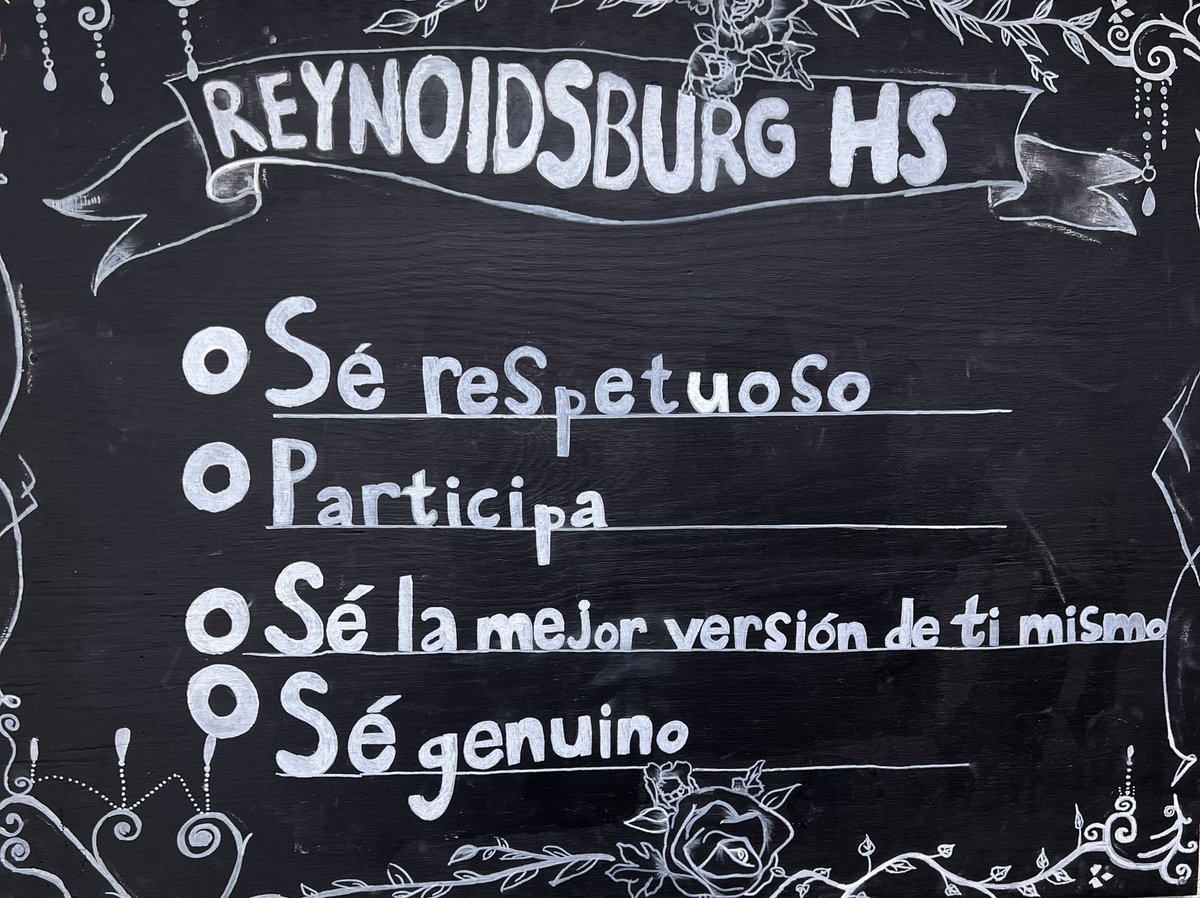 REYNOIDSBURG HS
Sé respetuoso
Participa
Sé la mejor versión de ti mismo
Sé genuino